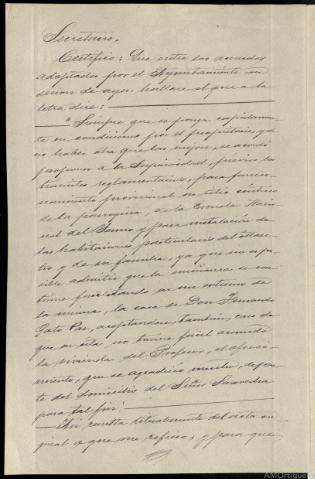 Secretario,
Certifico: Que entre los acuerdos
adoptados por el Ayuntamiento en
sesión de ayer, hallase el que a la
letra dice:
"Siempre que se ponga rapidamen-
te en condiciones por el propietario, y de
no haber otra que las mejore, se acordó
proponer a la Superioridad, previos los
tramites reglamentarios, para funcio-
namiento provisional en sitio céntrico
de la parroquia, de la Escuela Nacio-
nal del Seixo y para instalación de
las habitaciones particulares del Maes-
tro y de su familia, ya que no es po-
sible admitir que la enseñanza se con-
tinue facilitando en un extremo de
la misma, la casa de Don Fernando
Pato Paz, aceptandose, tambien, caso de
que en ésta no tuviese fácil acomodo
la vivienda del Profesor, el ofreci-
miento, que se agradece mucho, de par-
te del domicilio del Señor Saavedra
para tal fin."
Así resulta literalmente del acta ori-
ginal a que me refiero; y para que
AMOrtigueira